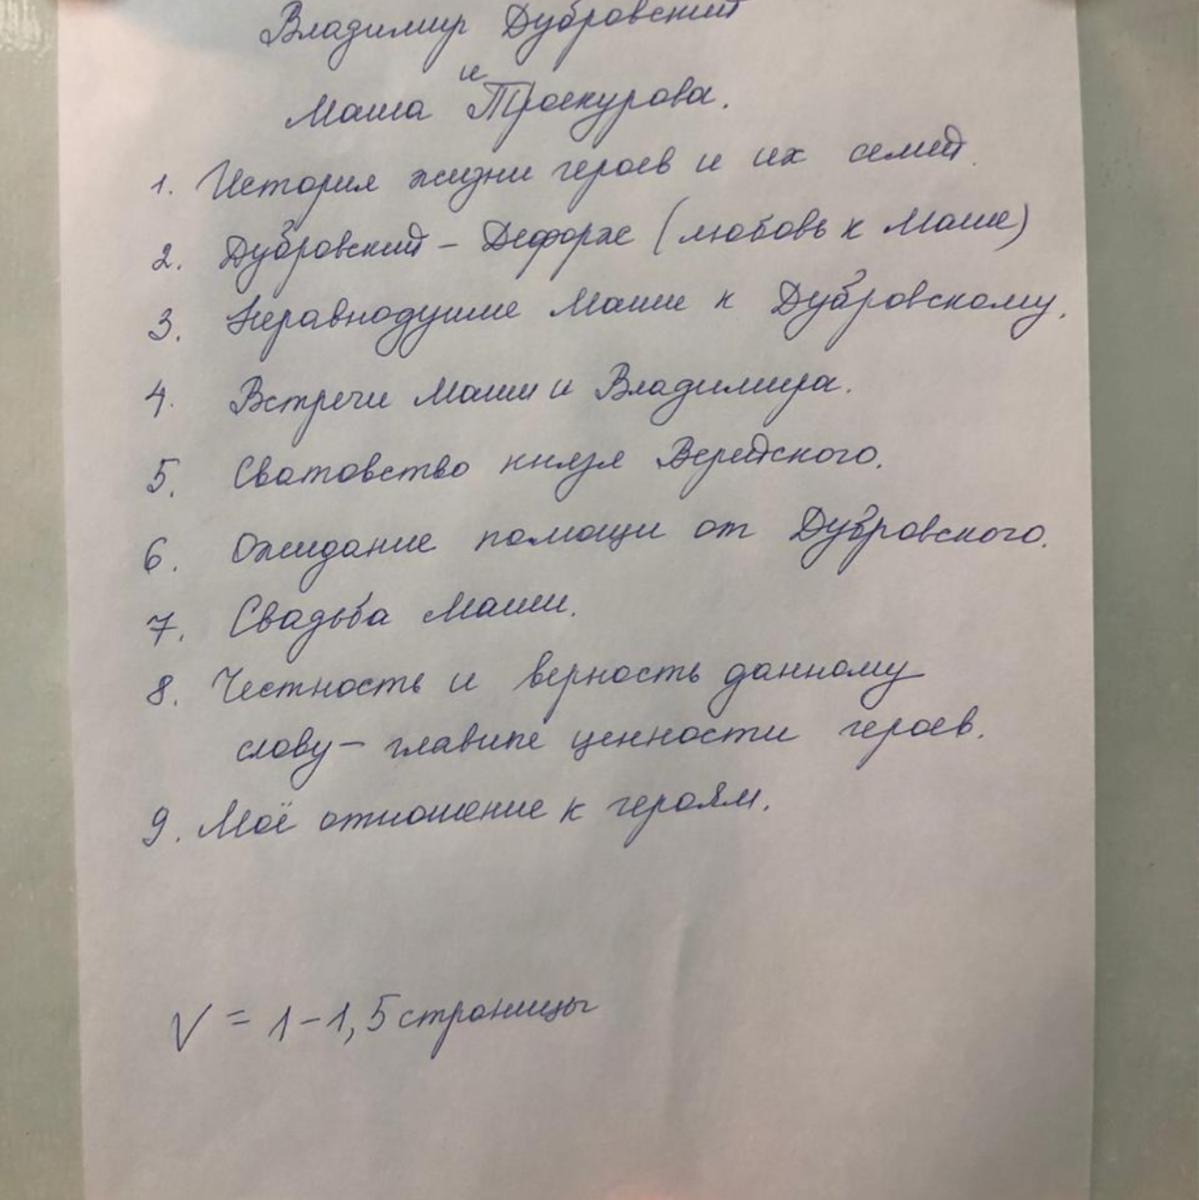 Владимир Дубровский
и
Маша Троекурова.
1. История жизни героев и их семей.
2. Дубровский – Дефорж (любовь к Маше)
3. Неравнодушие Маши к Дубровскому.
4. Встречи Маши и Владимира.
5. Сватовство князя Верейского.
6. Ожидание помощи от Дубровского.
7. Свадьба Маши.
8. Честность и верность данному
слову – главные ценности героев.
9. Моё отношение к героям.
V = 1–1,5 страницы